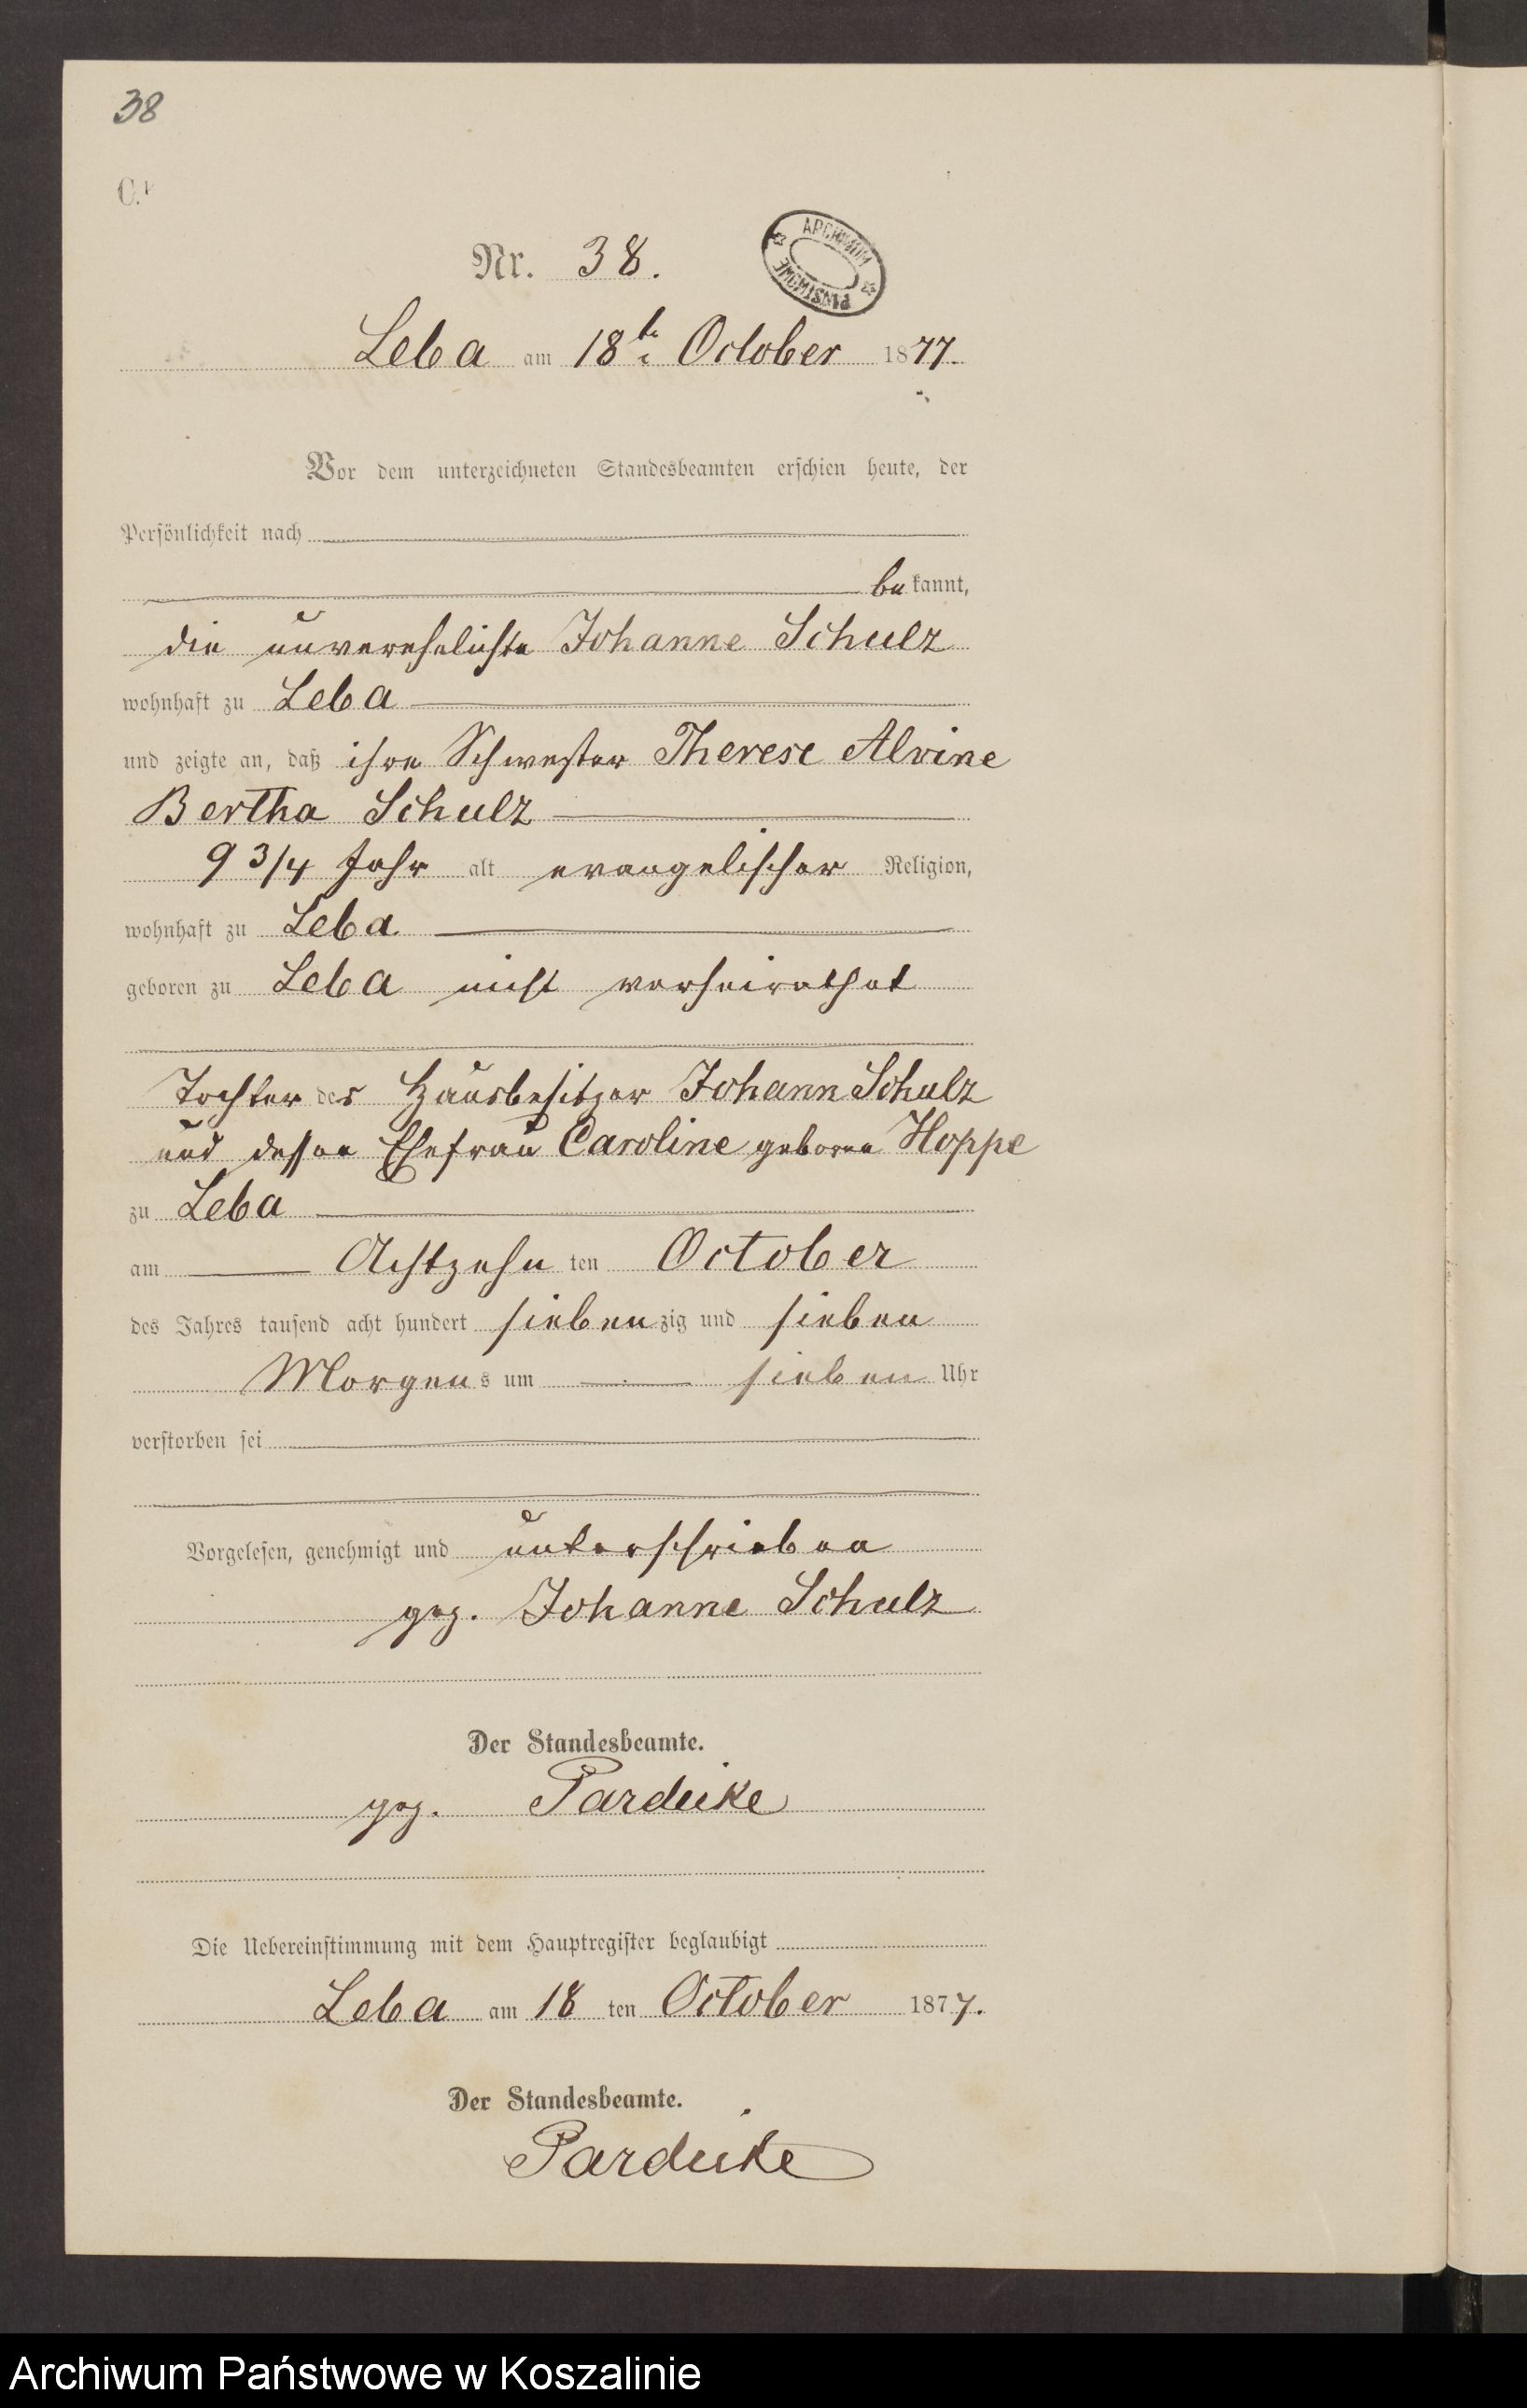 38
C.
Nr. 38.
ARCHIWUM PAŃSTWOWE
Leba am 18te October 1877.
Vor dem unterzeichneten Standesbeamten erschien heute, der
Persönlichkeit nach
bekannt,
die unverehelichte Johanne Schulz
wohnhaft zu Leba
und zeigte an, daß ihre Schwester Therese Alvine
Bertha Schulz
9 3/4 Jahr alt evangelischer Religion,
wohnhaft zu Leba
geboren zu Leba nicht verheirathet
Tochter des Hausbesitzer Johann Schulz
und dessen Ehefrau Caroline geboren Hoppe
zu Leba
am Achtzehn ten October
des Jahres tausend acht hundert siebenzig und sieben
Morgens um sieben Uhr
verstorben sei
Vorgelesen, genehmigt und unterschrieben
gez. Johanne Schulz
Der Standesbeamte.
gez. Pardeike
Die Uebereinstimmung mit dem Hauptregister beglaubigt
Leba am 18 ten October 1877.
Der Standesbeamte.
Pardeike
Archiwum Państwowe w Koszalinie